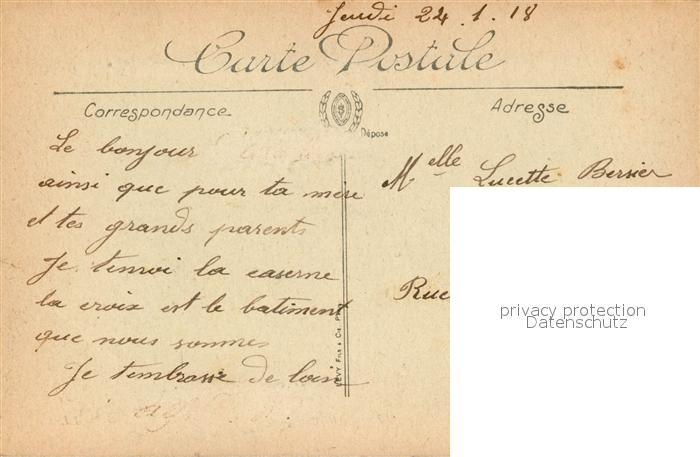 Jeudi 24.1.18
Carte Postale
Correspondance
Adresse
Déposé
Le bonjour
ainsi que pour ta mère
et tes grands parents
Je t'envoi la caserne
la croix est le batiment
que nous sommes
Je t'embrasse de loin
Melle Lucette Bersier
Rue
LEVY Fils & Cie
privacy protection
Datenschutz